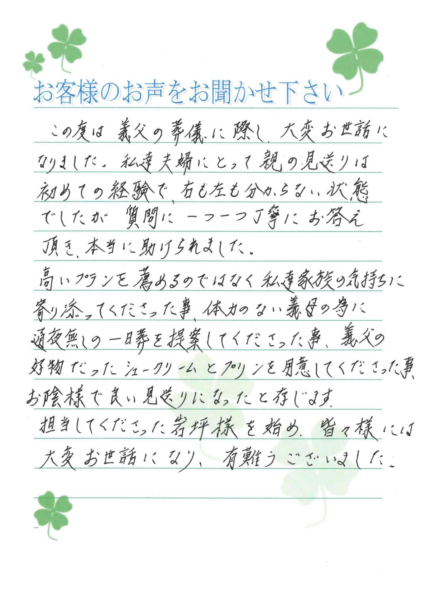 お客様のお声をお聞かせ下さい
この度は 義父の葬儀に際し、大変お世話に
なりました。私達夫婦にとって親の見送りは
初めての経験で、右も左も分からない状態
でしたが 質問に一つ一つ丁寧にお答え
頂き、本当に助けられました。
高いプランを薦めるのではなく私達家族の気持ちに
寄り添ってくださった事、体力のない義母の為に
通夜無しの一日葬を提案してくださった事、義父の
好物だったシュークリームとプリンを用意してくださった事、
お陰様で良い見送りになったと存じます。
担当してくださった岩坪様を始め、皆々様には
大変お世話になり、有難うございました。